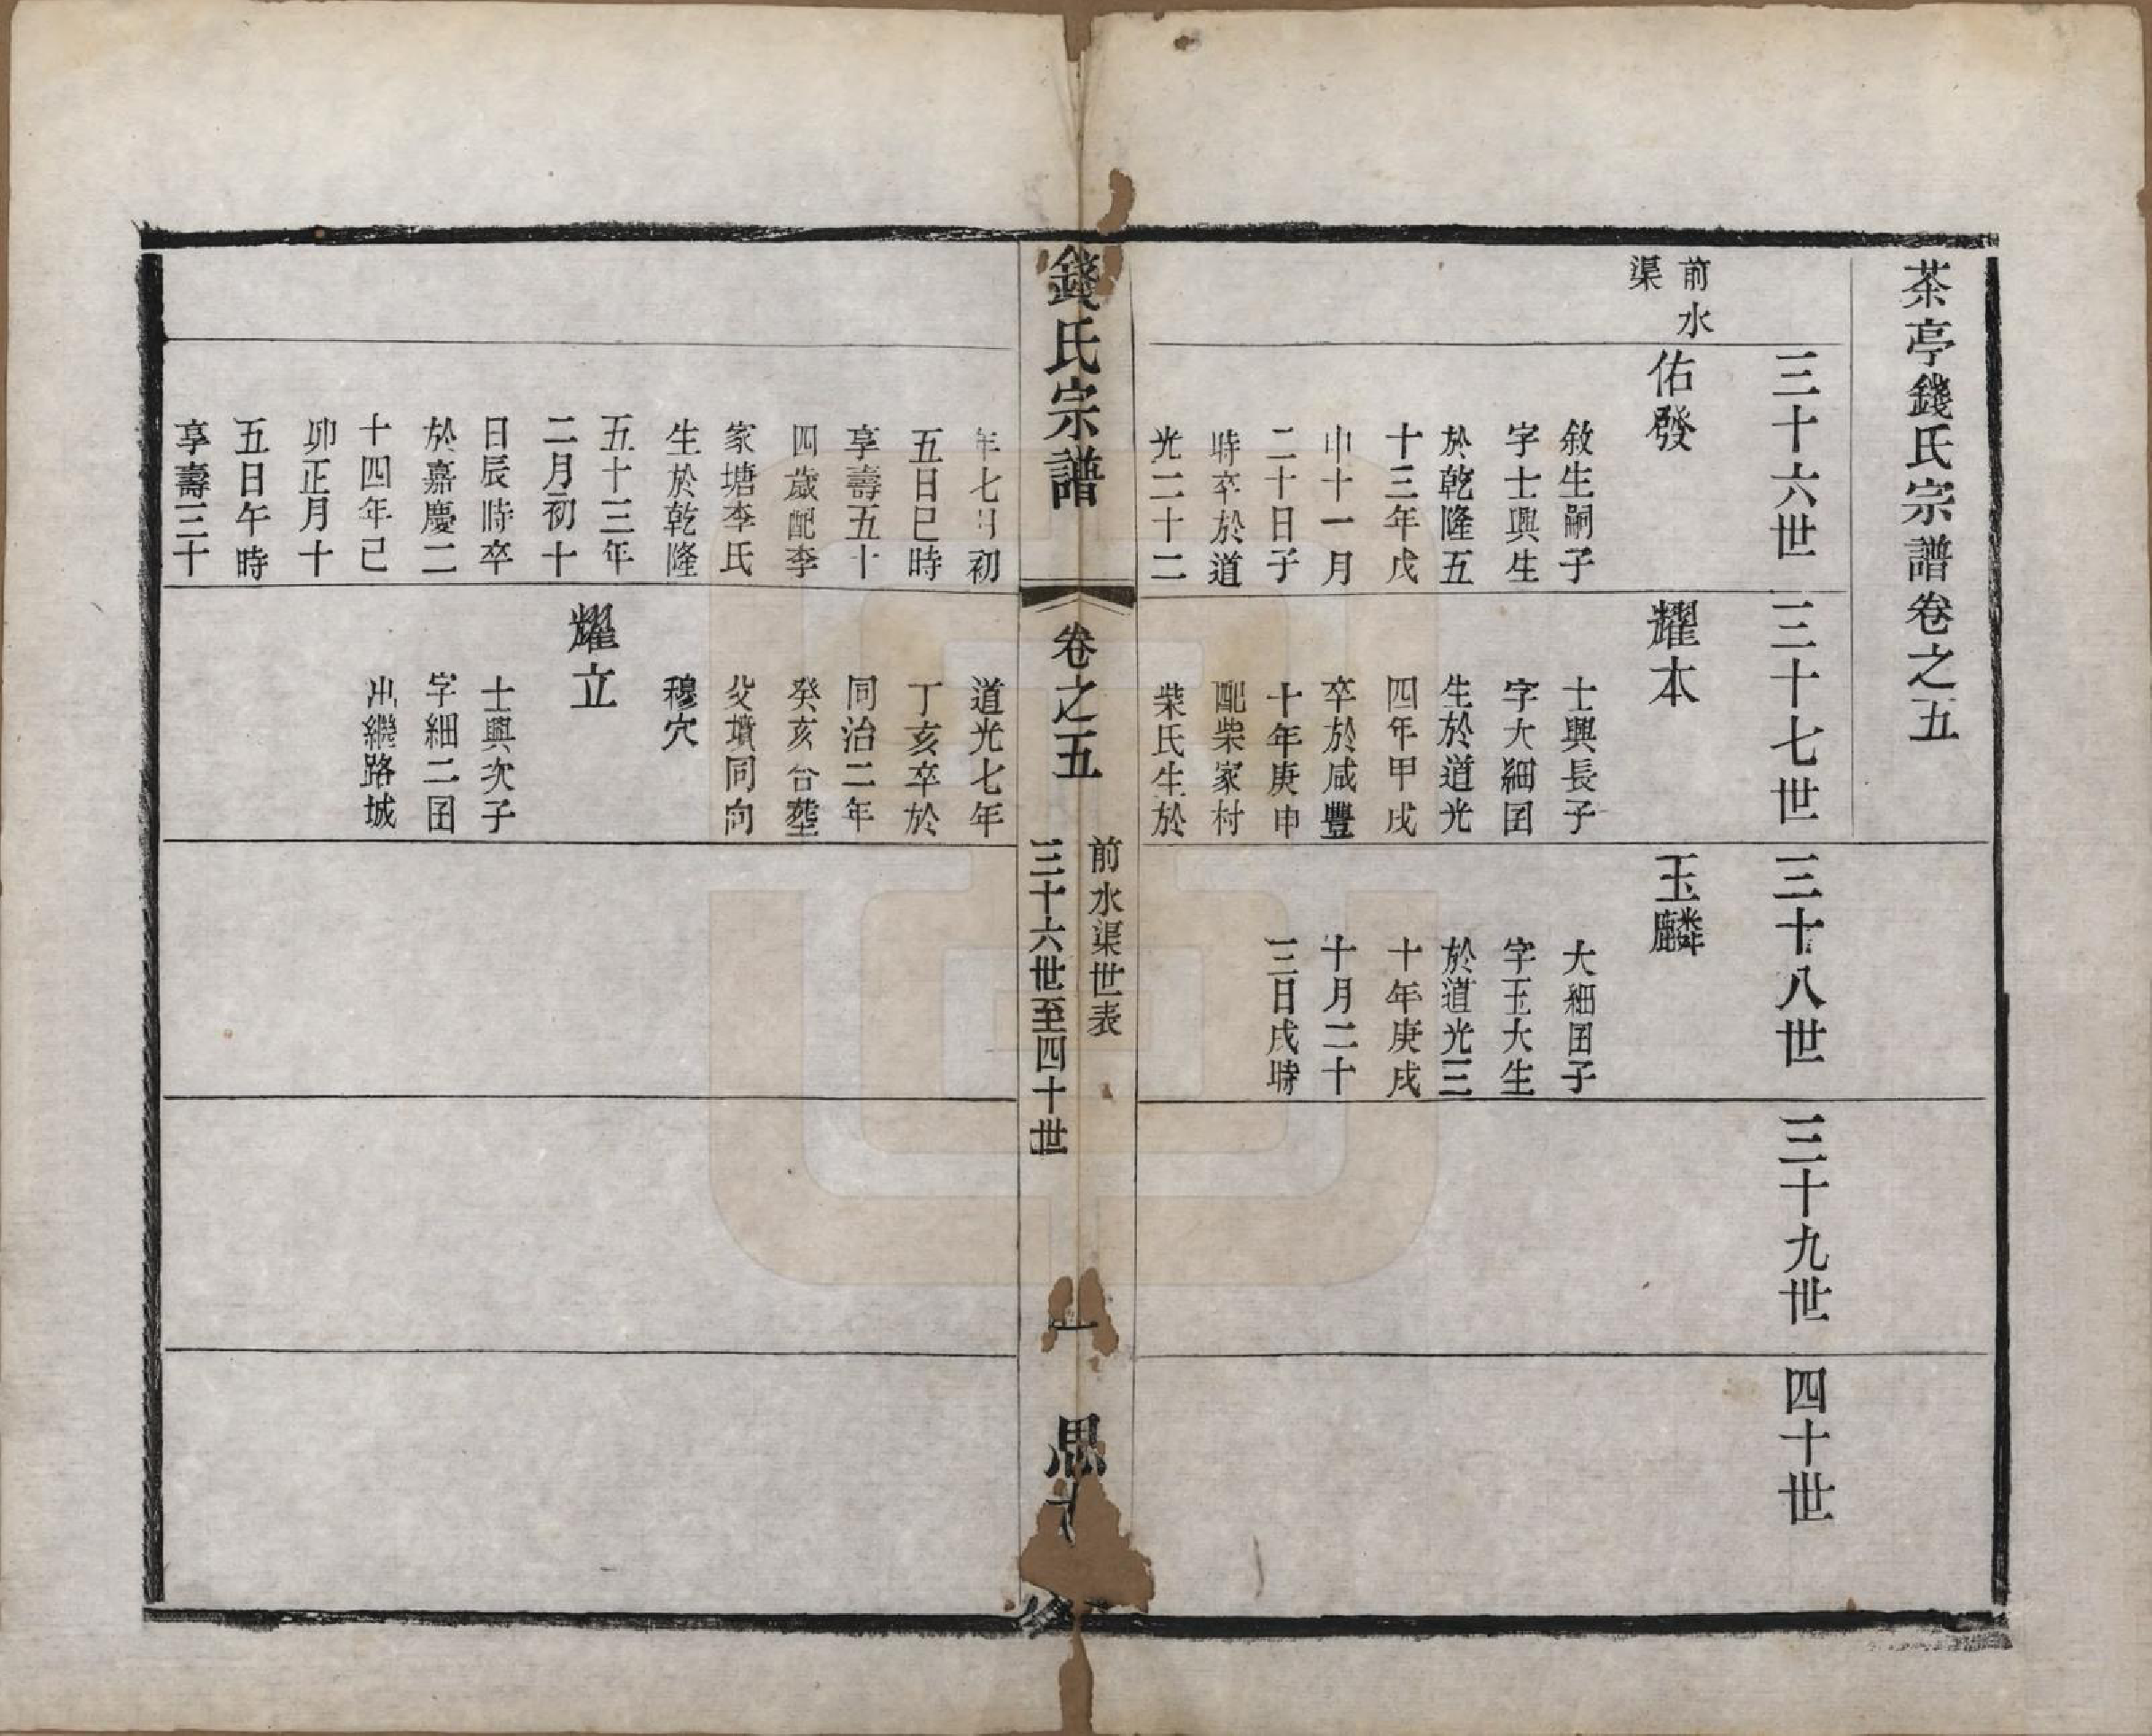 茶亭錢氏宗譜卷之五
三十六世
三十七世
三十八世
三十九世
四十世
前水
渠
佑發
敘生嗣子
字士興生
於乾隆五
十三年戊
申十一月
二十日子
時卒於道
光二十二
耀本
士興長子
字大細囝
生於道光
四年甲戌
卒於咸豐
十年庚申
配柴家村
柴氏生於
玉麟
大細囝子
字玉大生
於道光三
十年庚戌
十月二十
三日戌時
錢氏宗譜
卷之五
前水渠世表
三十六世至四十世
一
思
年七月初
五日巳時
享壽五十
四歲配李
家塘李氏
生於乾隆
五十三年
二月初十
日辰時卒
於嘉慶二
十四年己
卯正月十
五日午時
享壽三十
道光七年
丁亥卒於
同治二年
癸亥合塟
父墳同向
穆穴
耀立
士興次子
字細二囝
出繼路城